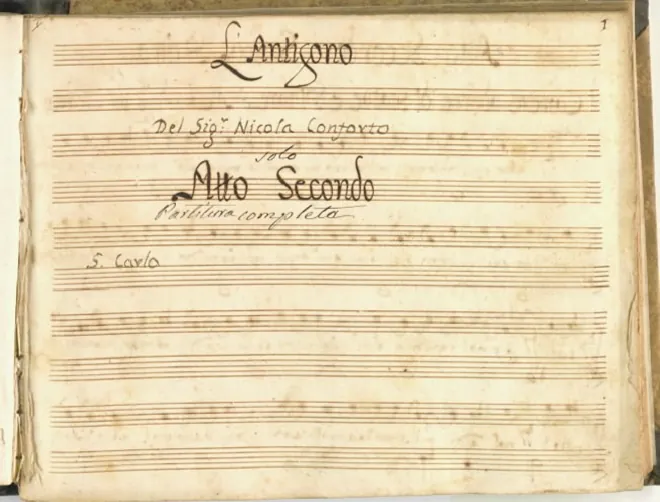 1
L'Antigono
Del Sig.r Nicola Conforto
solo
Atto Secondo
Partitura completa
S. Carlo